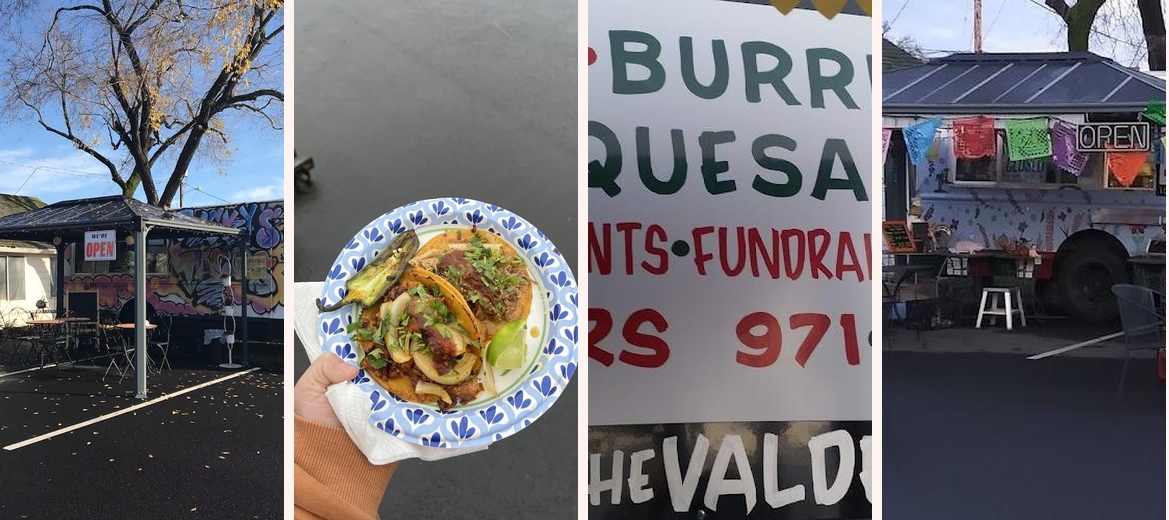 WE'RE
OPEN
BURRI
QUESA
NTS•FUNDRAI
RS 971
HE VALD
OPEN
CLOSED